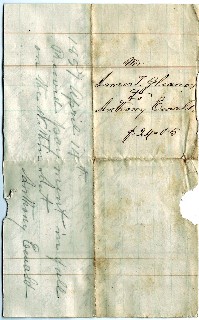 Mr.
James T. Gleason
To
Anthony Ewald
$24.05
1857 April 18th
Received payment in full
on the within
Anthony Ewald